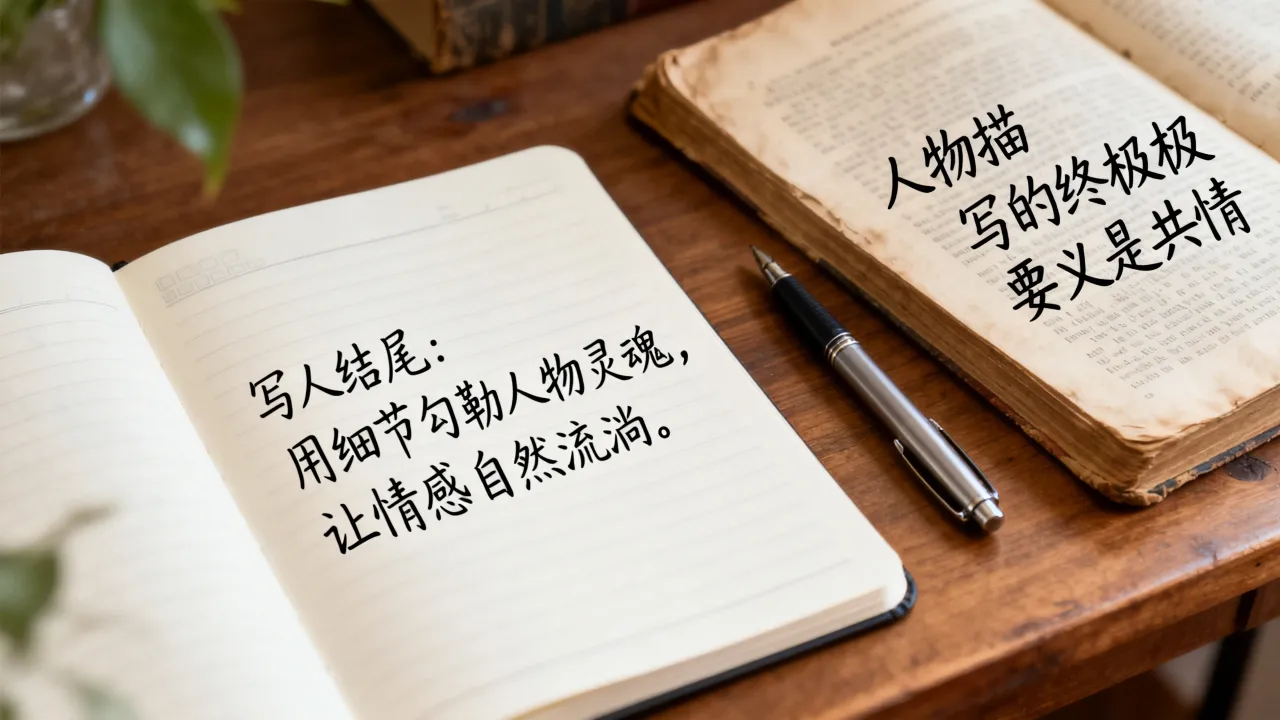 写人结尾：
用细节勾勒人物灵魂，
让情感自然流淌。
人物描
写的终极极
要义是共情